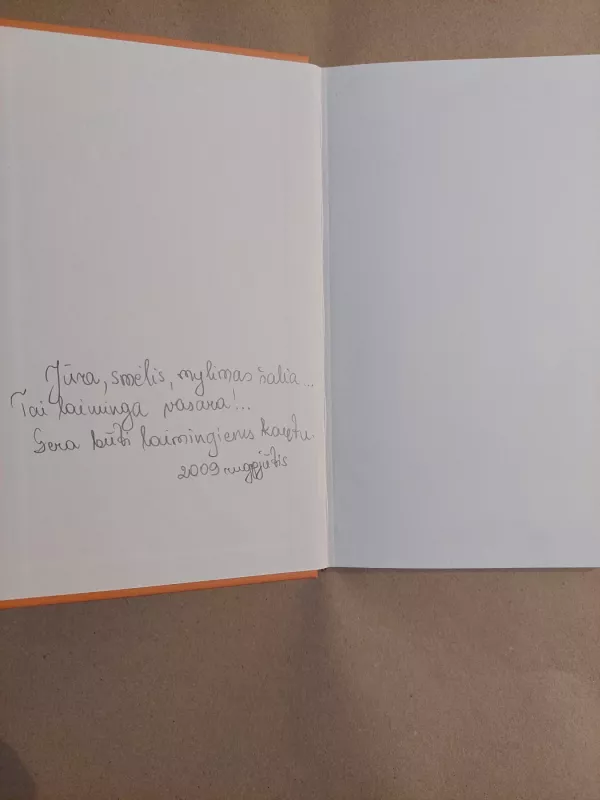 Jūra, smėlis, mylimas šalia...
Tai laiminga vasara!...
Gera būti laimingiems kartu.
2009 rugpjūtis